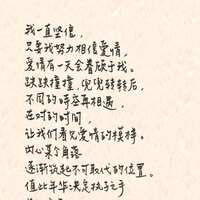 我一直坚信，
只要我努力相信爱情，
爱情有一天会眷顾于我。
跌跌撞撞，兜兜转转后，
不同的时空再相遇，
在对的时间，
让我们看见爱情的模样。
内心某个角落
逐渐筑起不可取代的位置。
值此年华决定执子之手